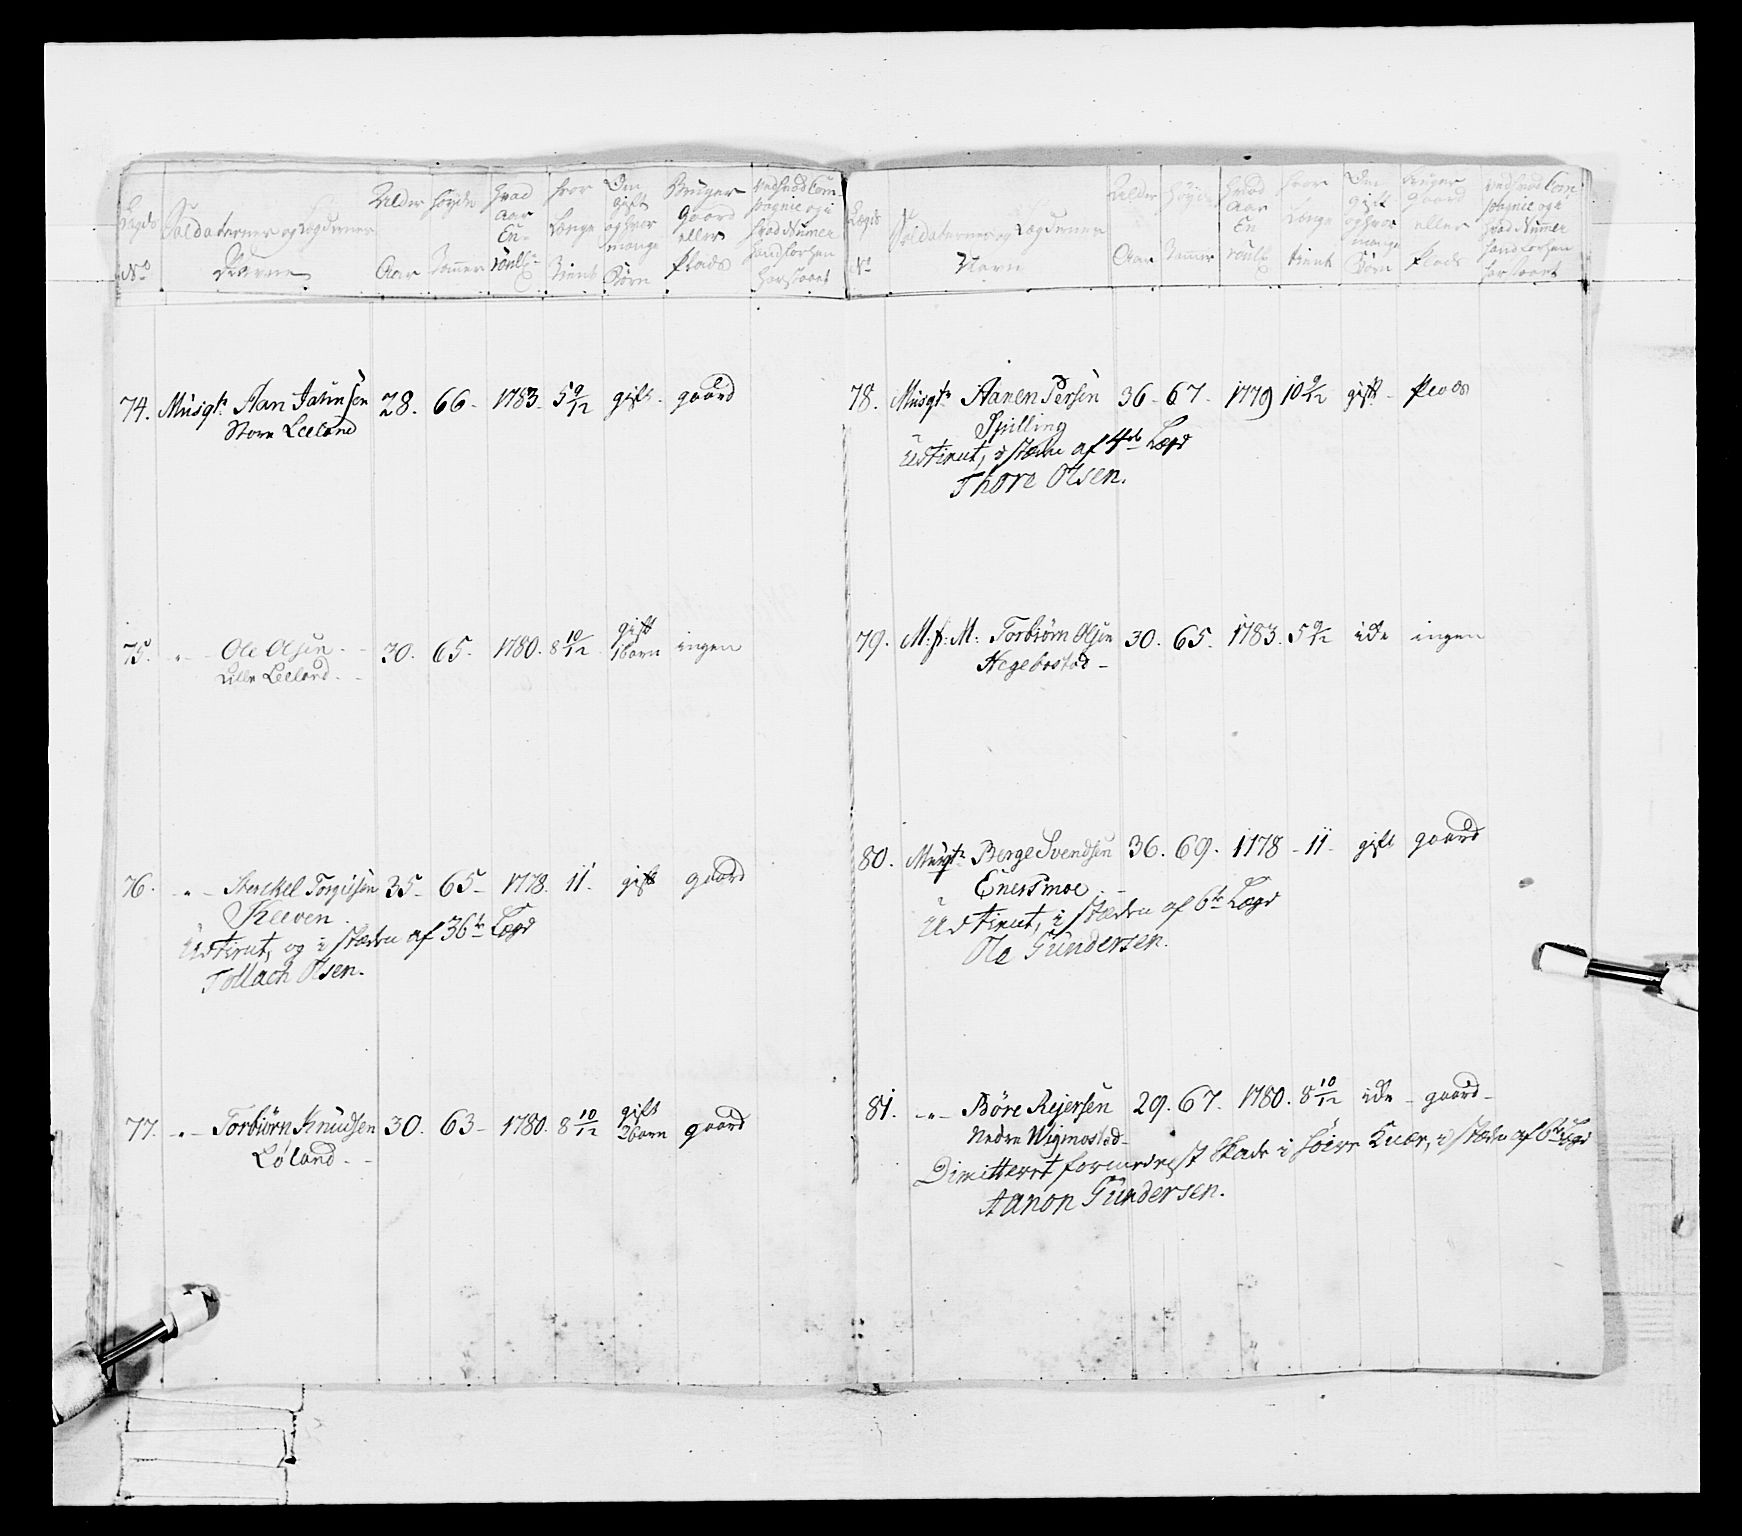 Legds No
Soldaternes og Legdernes Navne
Alder Aar
Høyde Tommer
Hvad Aar En-roull:
Hvor Længe Tient
Om gift og hvor mange Børn
Bruger Gaard eller Plads
Ved hvad Com-pagnie og i hvad Numer hand forhen har staaet
74. Musqt: Aan Jahnsen 28. 66- 1783- 5 9/12 gift- gaard
Store Leeland
75. -"- Ole Olsen 30. 65- 1780. 8 10/12 gift 1 barn ingen
Lille Leeland
76. -"- Terckel Torgiusen 35- 65- 1778. 11- gift gaard
Kleeven
Udtient, og i stæden af 36te Lægd
Tollach Olsen.
77. -"- Torbiørn Knudsen 30. 63- 1780. 8 10/12 gift 2 barn gaard
Løland
Lægds No
Soldaternes og Lægdernes Navn
Alder Aar
Høyde Tommer
Hvad Aar En roull:
Hvor Længe tient
Om gift og hvor mange Børn
Bruger Gaard eller Plads
Ved hvad Com-pagnie og i hvad Numer hand forhen har staaet
78. Musqt: Aanen Persen 36- 67- 1779 10 9/12 gift- Plads
Spilling
Udtient, i stæden af 4de Lægd
Thore Olsen.
79. M: f: M: Torbiørn Olsen 30. 65. 1783. 5 9/12 ide ingen
Hegebostad-
80. Musqt: Berge Svendsen 36. 69. 1778 - 11- gift gaard
Enersmoe
Udtient, i stæden af 6te Lægd
Ole Gundersen.
81. -"- Børe Rejersen 29. 67. 1780. 8 10/12 ide - gaard-
Nedre Wigmostad-
Dimitteret formedelst Skade i høire Knæe, i stæden af 6te Lægd
Aanon Gundersen.